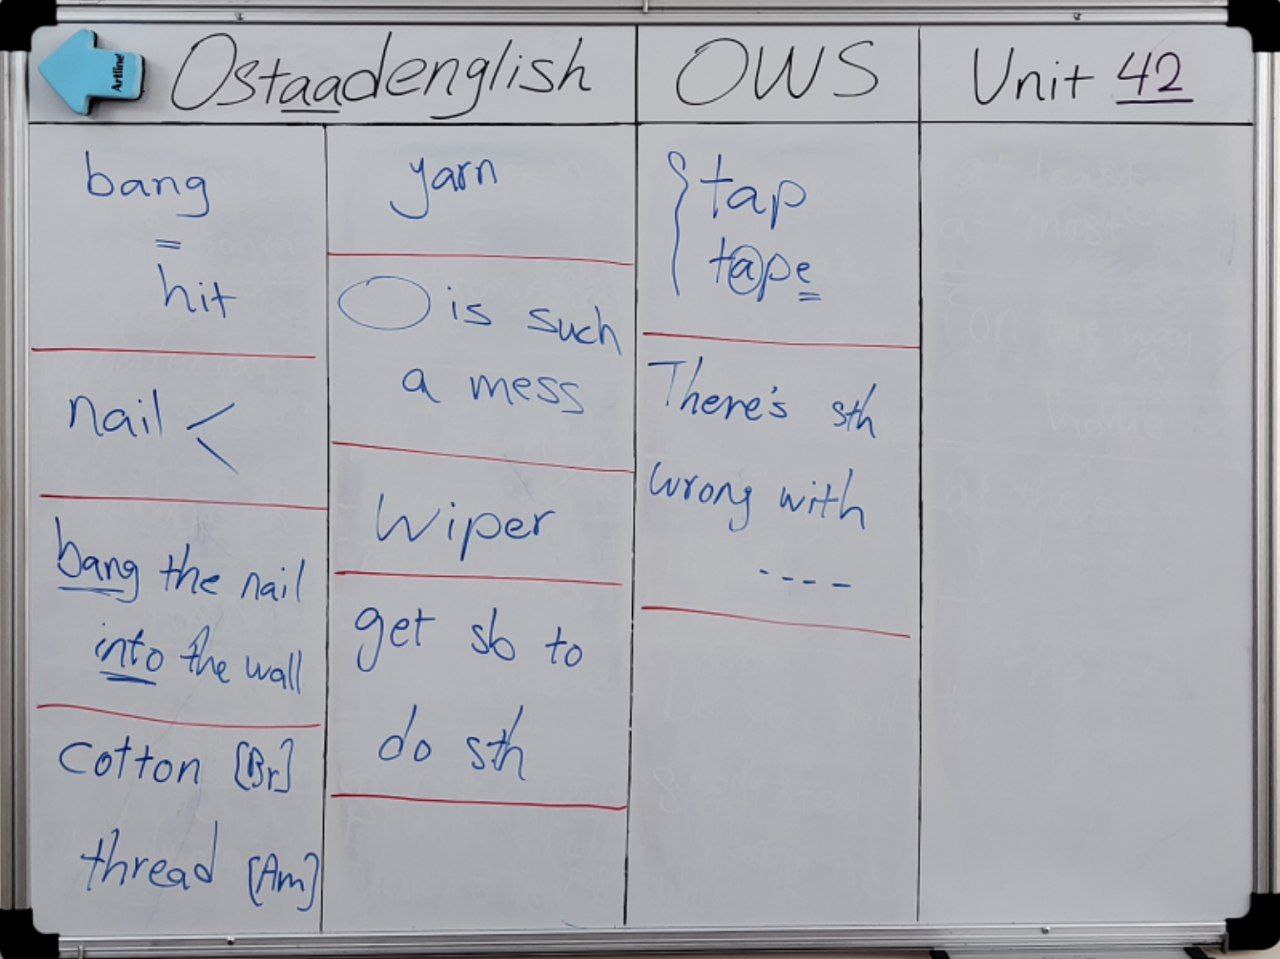 Artline
Ostaadenglish
OWS
Unit 42
bang
=
hit
nail <
bang the nail
into the wall
cotton [Br]
thread [Am]
yarn
is such
a mess
wiper
get sb to
do sth
{ tap
tape
There's sth
wrong with
----